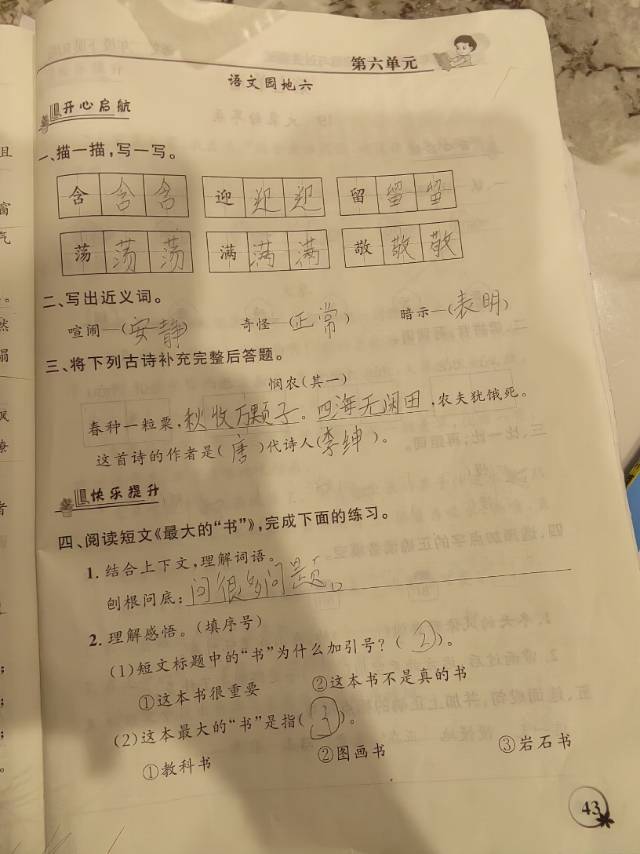 第六单元
语文园地六
开心启航
一、描一描,写一写。
含 含 含 迎 迎 迎 留 留 留
荡 荡 荡 满 满 满 敬 敬 敬
二、写出近义词。
喧闹—(安静) 奇怪—(正常) 暗示—(表明)
三、将下列古诗补充完整后答题。
悯农(其一)
春种一粒粟,秋收万颗子。四海无闲田,农夫犹饿死。
这首诗的作者是(唐)代诗人(李绅)。
快乐提升
四、阅读短文《最大的“书”》,完成下面的练习。
1. 结合上下文,理解词语。
刨根问底:问很多问题。
2. 理解感悟。(填序号)
(1)短文标题中的“书”为什么加引号?(2)。
①这本书很重要 ②这本书不是真的书
(2)这本最大的“书”是指(3)。
①教科书 ②图画书 ③岩石书
43